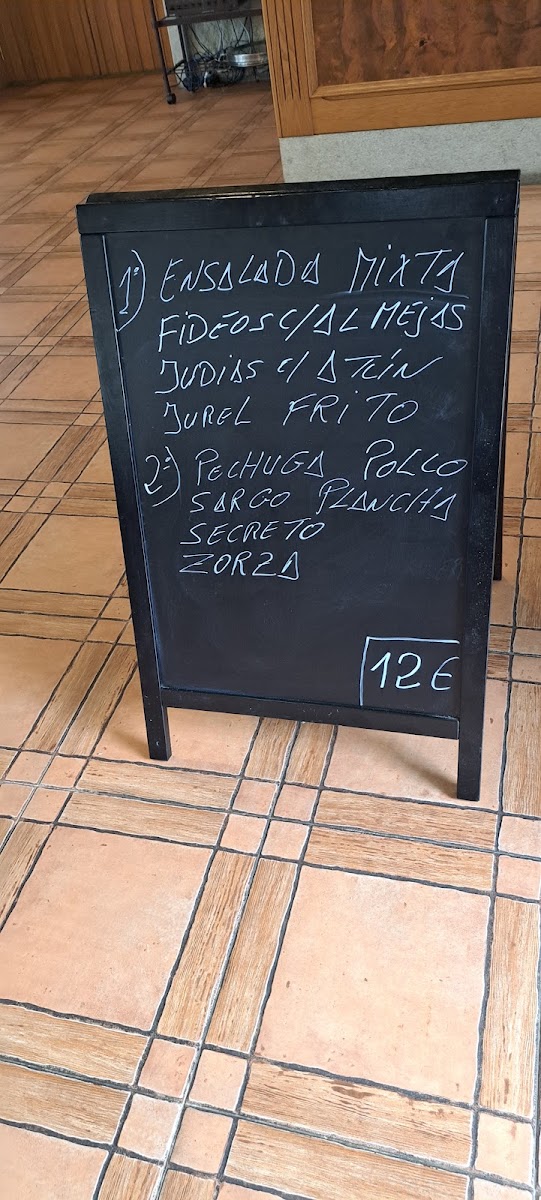 1º) ENSALADA MIXTA
FIDEOS C/ALMEJAS
JUDIAS C/ATÚN
JUREL FRITO
2º) PECHUGA POLLO
SARGO PLANCHA
SECRETO
ZORZA
12€